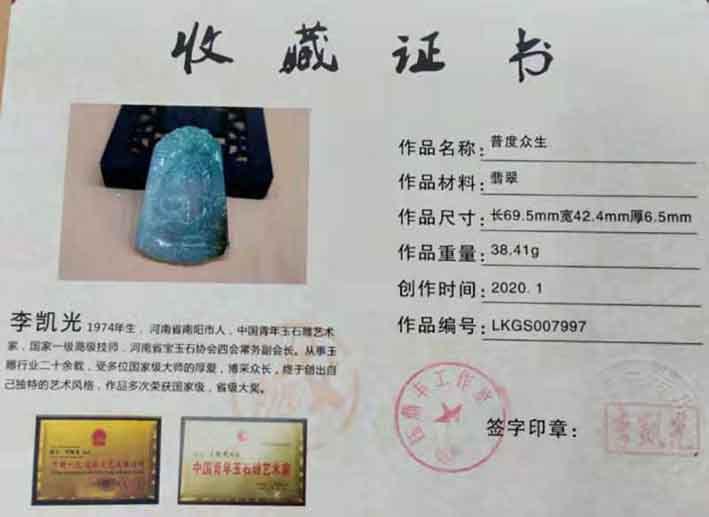 收藏证书
作品名称：普度众生
作品材料：翡翠
作品尺寸：长69.5mm宽42.4mm厚6.5mm
作品重量：38.41g
创作时间：2020.1
作品编号：LKGS007997
李凯光 1974年生，河南省南阳市人，中国青年玉石雕艺术
家，国家一级高级技师，河南省宝玉石协会四会常务副会长。从事玉
雕行业二十余载，受多位国家级大师的厚爱，博采众长，终于创出自
己独特的艺术风格，作品多次荣获国家级，省级大奖。
中国青年玉石雕艺术家
签字印章：
李凯光